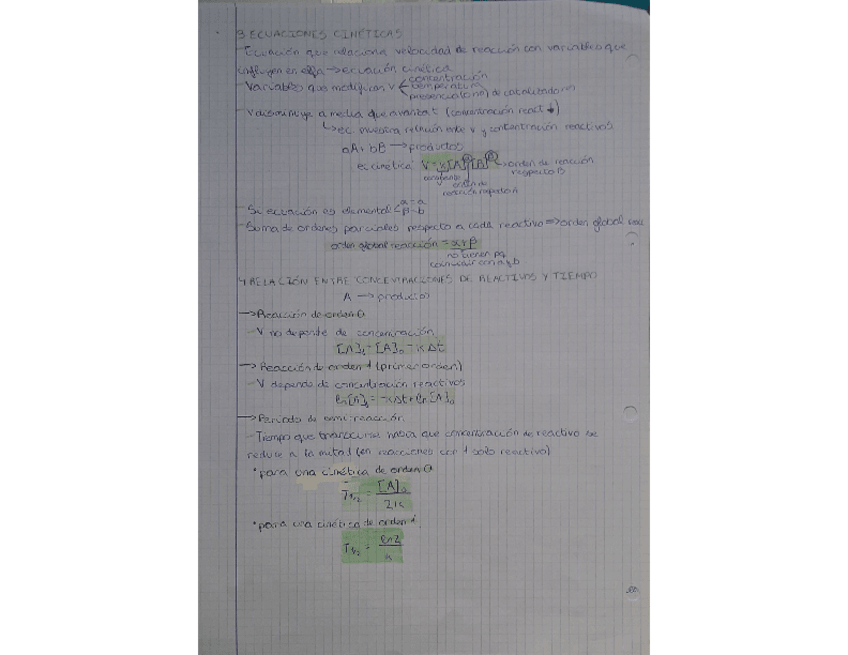 3 ECUACIONES CINÉTICAS
-Ecuación que relaciona velocidad de reacción con variables que
influyen en ella → ecuación cinética
-Variables que modifican V < concentración
temperatura
presencia (o no) de catalizadores
-V disminuye a medida que avanza t (concentración react ↓)
↳ ec. muestra relación entre v y concentración reactivos
aA + bB → productos
ec cinética: V = k[A]^α[B]^β → orden de reacción
respecto B
constante
orden de
reacción respecto A
-Si ecuación es elemental < α = a
β = b
-Suma de ordenes parciales respecto a cada reactivo ⇒ orden global
orden global reacción = α + β
no tienen pq
coincidir con a y b
4 RELACIÓN ENTRE CONCENTRACIONES DE REACTIVOS Y TIEMPO
A → productos
→ Reacción de orden 0
-V no depende de concentración
[A]t = [A]₀ - kΔt
→ Reacción de orden 1 (primer orden)
-V depende de concentración reactivos
ln[A]t = -kΔt + ln[A]₀
→ Periodo de semi-reacción
-Tiempo que transcurre hasta que concentración de reactivo se
reduce a la mitad (en reacciones con 1 solo reactivo)
*para una cinética de orden 0
T1/2 = [A]₀ / 2k
*para una cinética de orden 1.
T1/2 = ln2 / k